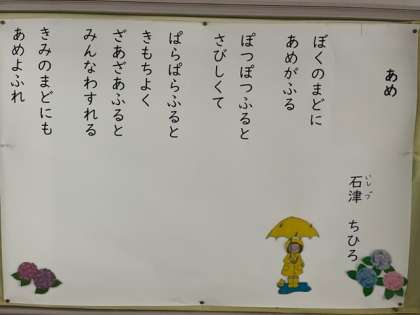 あめ
石津　ちひろ
いしづ
ぼくのまどに
あめがふる
ぽつぽつふると
さびしくて
ぱらぱらふると
きもちよく
ざあざあふると
みんなわすれる
きみのまどにも
あめよふれ